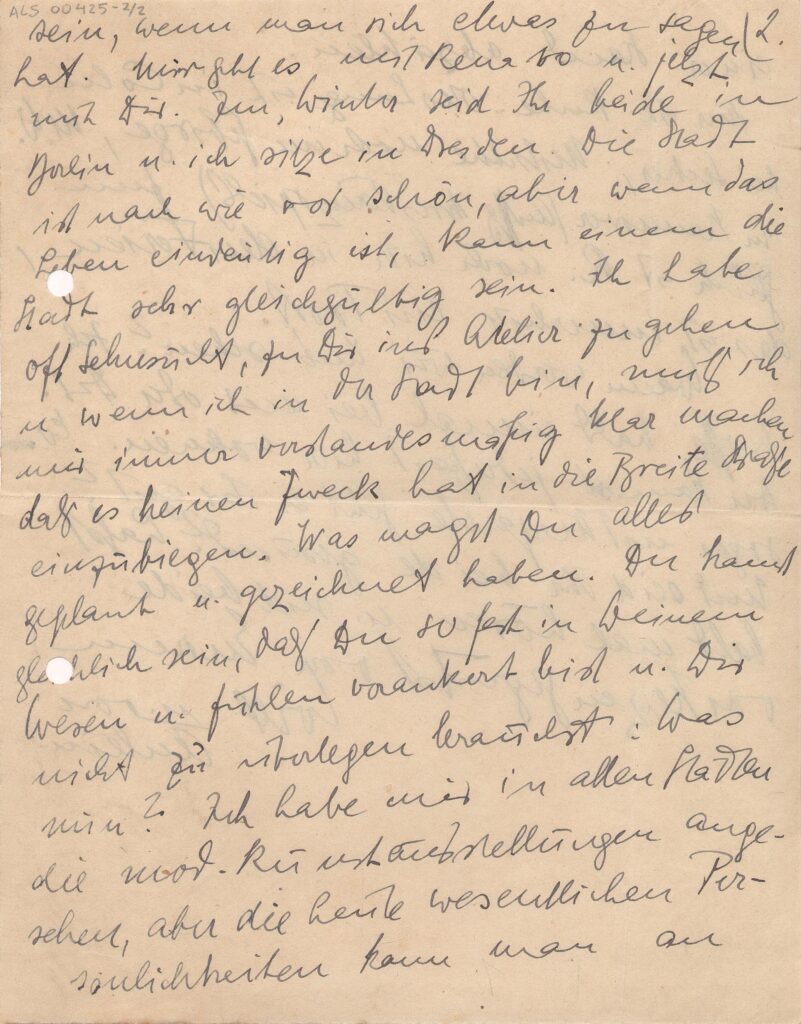 ALS 00425-2/2
sein, wenn man sich etwas zu sagen 2.
hat. Mir geht es mit Renato u. jetzt
mit Dir. Im Winter seid Ihr beide in
Berlin u. ich sitze in Dresden. Die Stadt
ist nach wie vor schön, aber wenn das
Leben eindeutig ist, kann einem die
Stadt sehr gleichgültig sein. Ich habe
oft Sehnsucht, zu Dir ins Atelier zu gehen
u wenn ich in der Stadt bin, muß ich
mir immer verstandesmäßig klar machen
daß es keinen Zweck hat in die Breite Straße
einzubiegen. Was magst Du alles
geplant u. gezeichnet haben. Du kannst
glücklich sein, daß Du so fest in Deinem
Wesen u. fühlen verankert bist u. Dir
nicht zu überlegen brauchst: Was
nun? Ich habe mir in allen Städten
die mod. Kunstausstellungen ange-
sehen, aber die heute wesentlichen Per-
sönlichkeiten kann man an